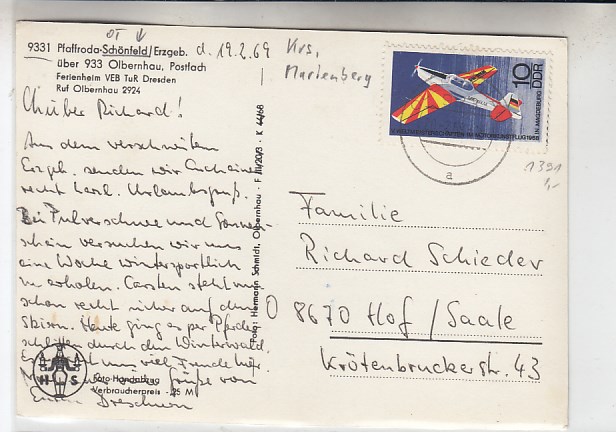 OT
9331 Pfaffroda-Schönfeld/Erzgeb.
über 933 Olbernhau, Postfach
Ferienheim VEB TuR Dresden
Ruf Olbernhau 2924
d. 19.2.69
Krs.
Marienberg
Lieber Richard!
Aus dem verschneiten
Erzgeb. senden wir Euch einen
recht herzl. Urlaubsgruß.
Bei Pulverschnee und Sonnen-
schein versuchen wir uns
eine Woche wintersportlich
zu erholen. Carsten steht nun
schon recht sicher auf den
Skiern. Heute ging es per Pferde-
schlitten durch den Winterwald.
Es macht uns viel Freude hier.
Grüße von
Euren Dresdnern
H S
Foto-Handabzug
Verbraucherpreis -,25 M
Foto: Hermann Schmidt, Olbernhau · F III/20/3 · K 44/68
10 DDR
V. WELTMEISTERSCHAFTEN IM MOTORKUNSTFLUG 1968
IN MAGDEBURG
a
1391
1,-
Familie
Richard Schieder
O 8670 Hof / Saale
Krötenbruckerstr. 43